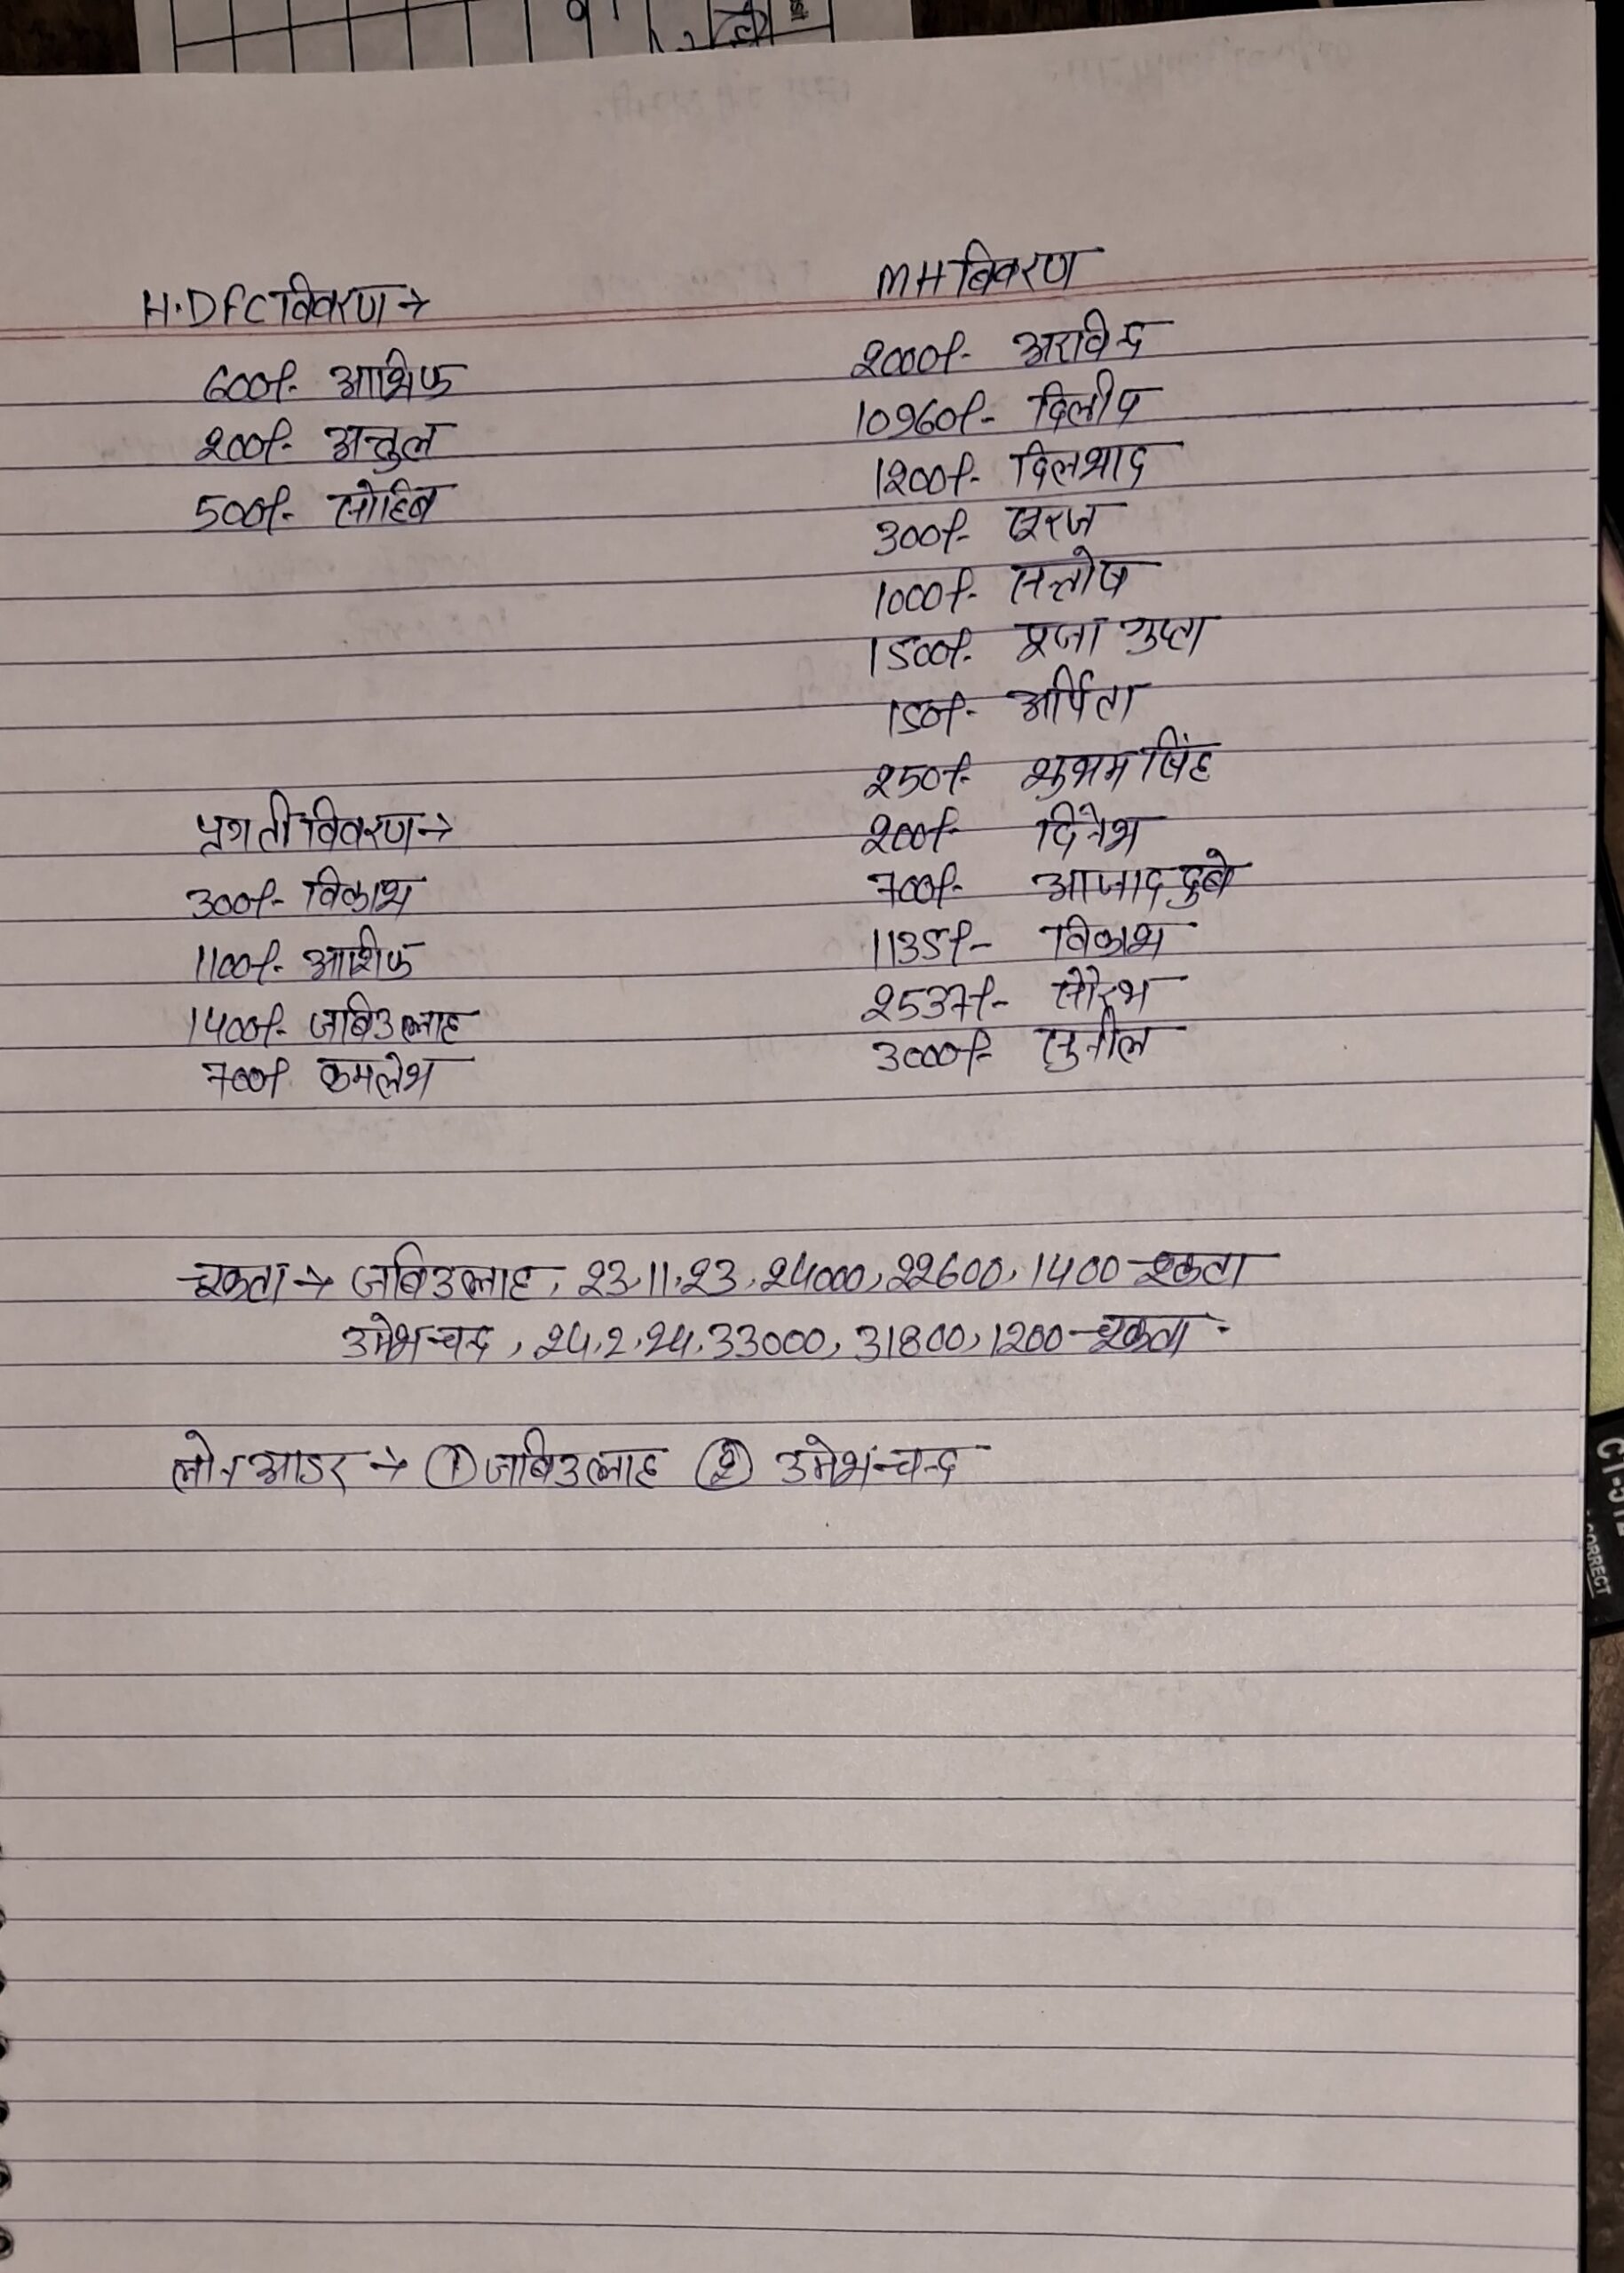 H.DFC विवरण →
600/- आशिफ
200/- अतुल
500/- सोहिब
प्रगती विवरण →
300/- विकाश
1100/- आशिफ
1400/- जबिउल्लाह
700/- कमलेश
MH विवरण
2000/- अरविन्द
10960/- दिलीप
1200/- दिलशाद
300/- सूरज
1000/- सन्तोष
1500/- पूजा गुप्ता
150/- अर्पिता
250/- शुभम सिंह
200/- दिनेश
700/- आजाद दुबे
1135/- विकाश
2537/- सौरभ
3000/- सुनील
चुकता → जबिउल्लाह, 23.11.23, 24000, 22600, 1400 चुकता
उमेशचन्द, 24.2.24, 33000, 31800, 1200 चुकता
लोन आडर → ① जबिउल्लाह ② उमेशचन्द
CORRECT